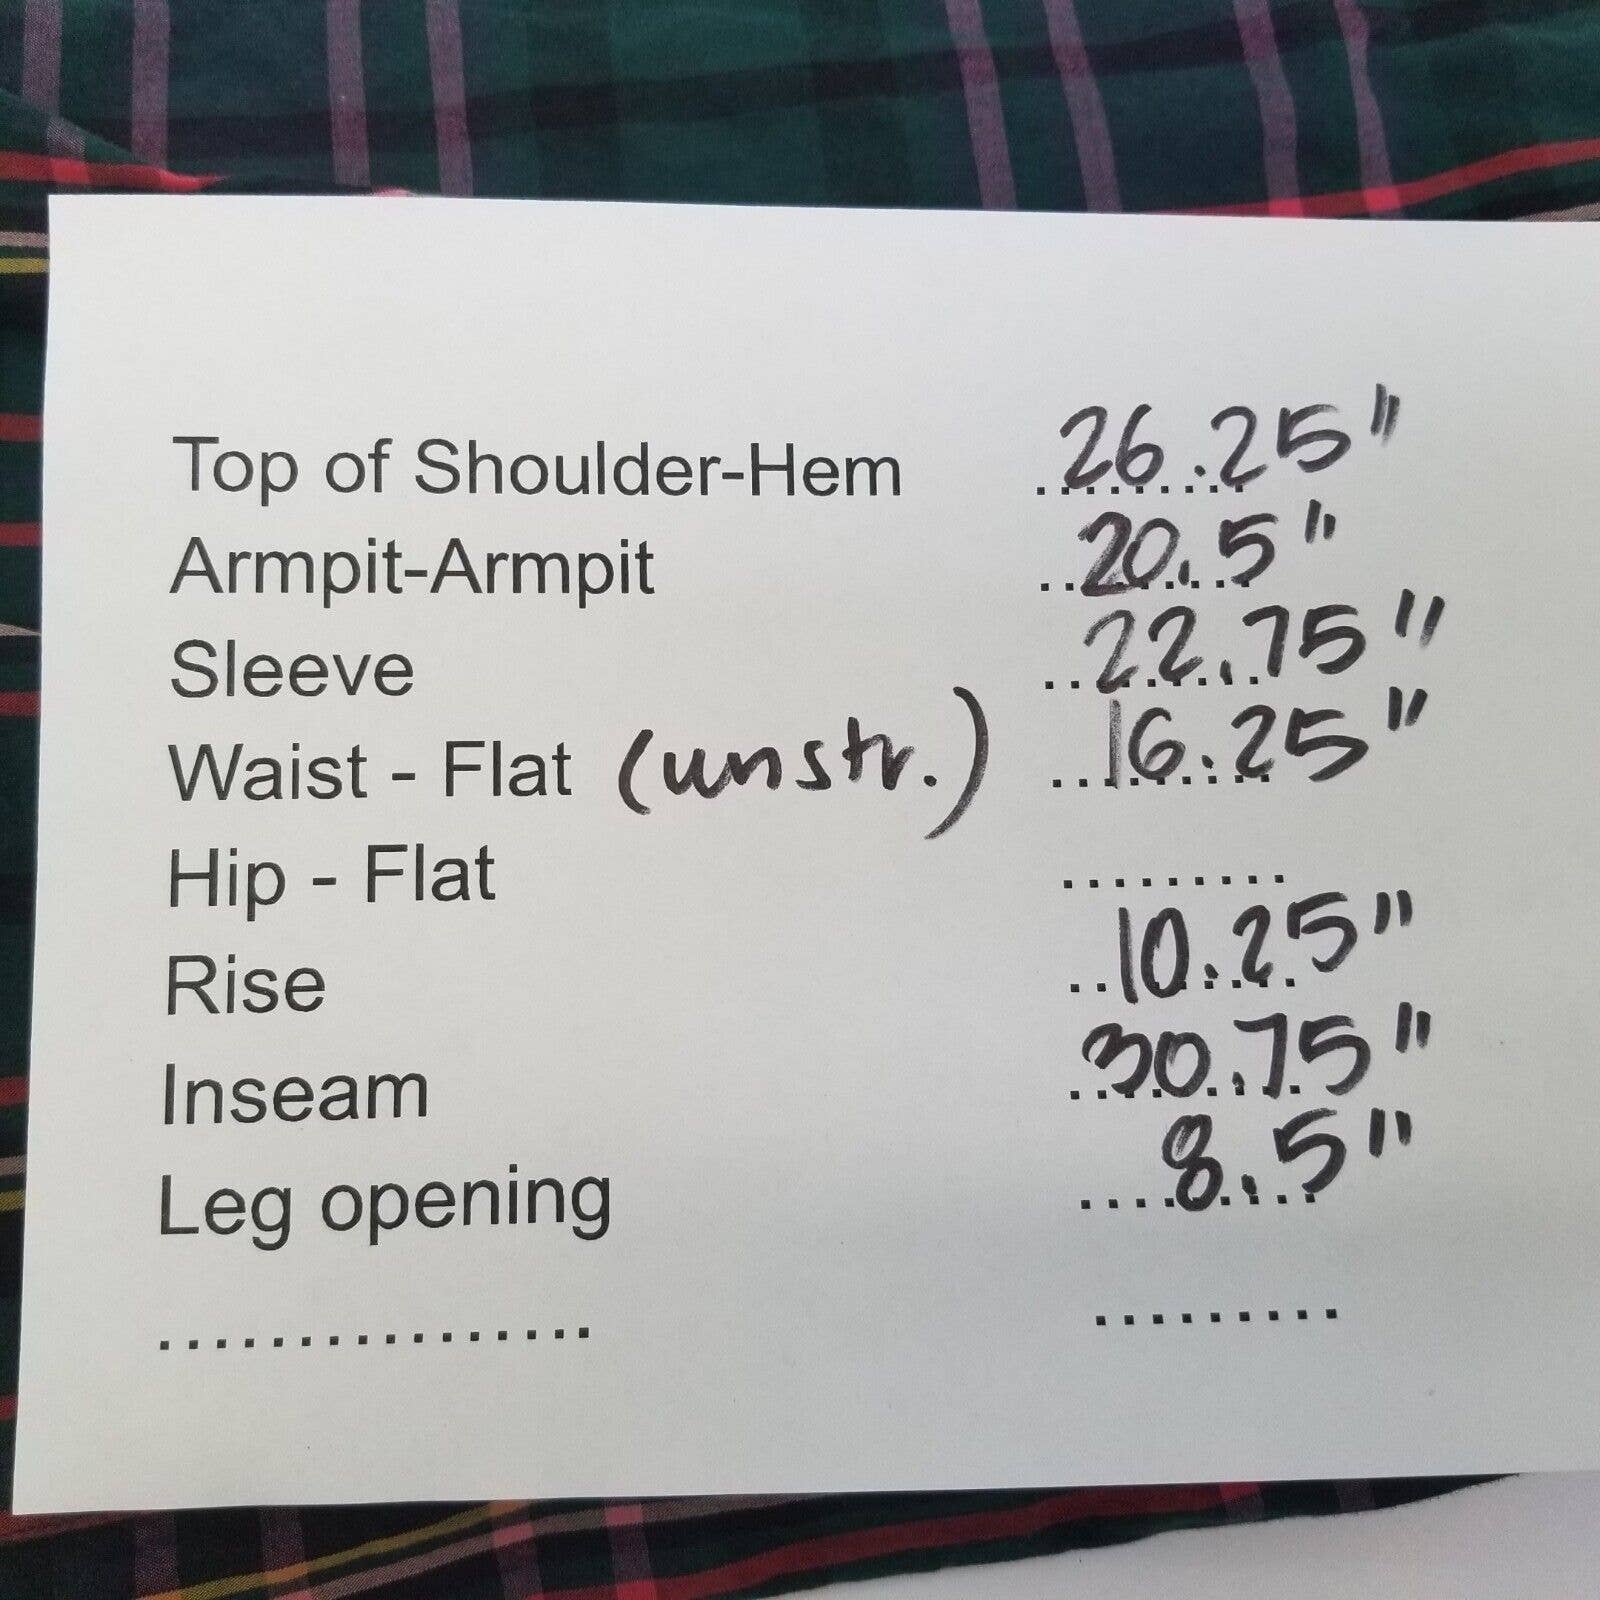 Top of Shoulder-Hem ......... 26.25"
Armpit-Armpit ......... 20.5"
Sleeve ......... 22.75"
Waist - Flat (unstr.) ......... 16.25"
Hip - Flat .........
Rise ......... 10.25"
Inseam ......... 30.75"
Leg opening ......... 8.5"
................ .........